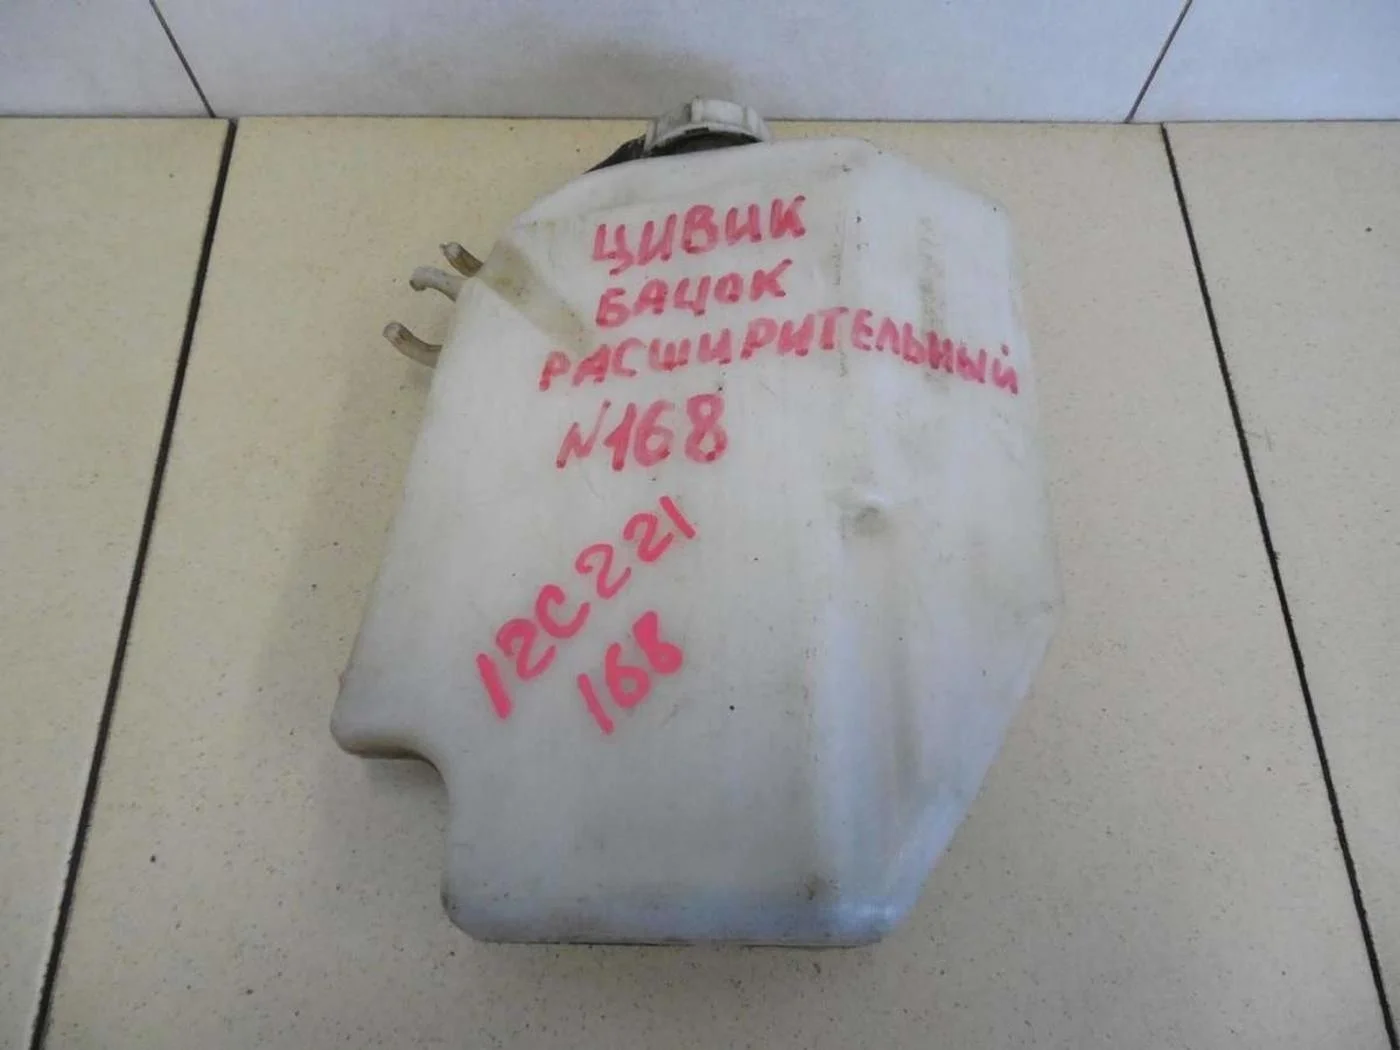 ЦИВИК
БАЦОК
РАСШИРИТЕЛЬНЫЙ
N168
12С221
168